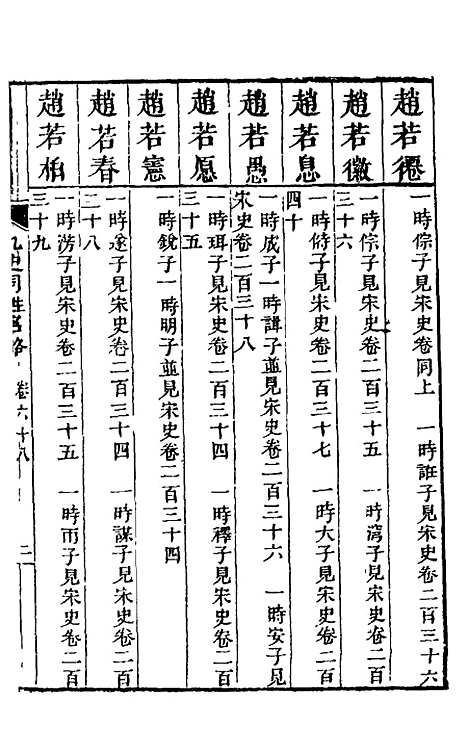 趙若𢕬 一時倧子見宋史卷同上 一時誑子見宋史卷二百三十六
趙若徽 一時倧子見宋史卷二百三十五 一時灣子見宋史卷二百
三十六
趙若息 一時脩子見宋史卷二百三十七 一時大子見宋史卷二百
四十
趙若愚 一時成子一時諿子並見宋史卷二百三十六 一時安子見
宋史卷二百三十八
趙若愿 一時珥子見宋史卷二百三十四 一時釋子見宋史卷二百
三十五
趙若憲 一時銳子一時明子並見宋史卷二百三十四
趙若春 一時遂子見宋史卷二百三十四 一時謀子見宋史卷二百
三十八
趙若柏 一時滂子見宋史卷二百三十五 一時帀子見宋史卷二百
三十九
九史同姓名略 卷六十八 二